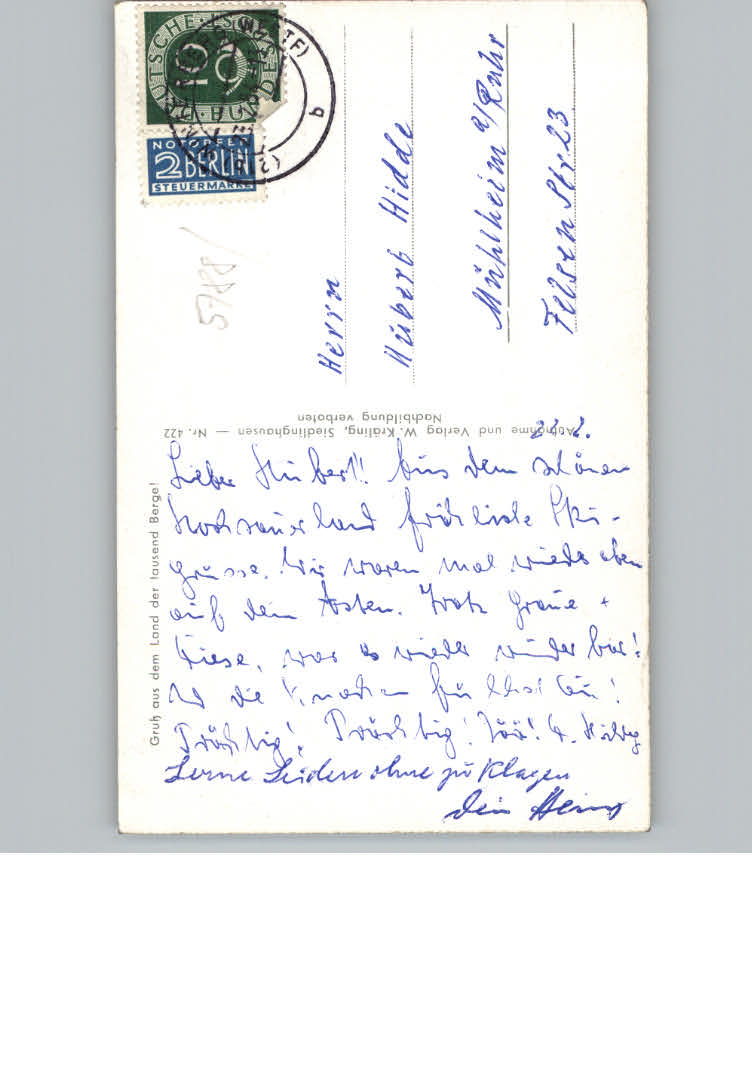 DEUTSCHE BUNDESPOST
10
NOTOPFER
2 BERLIN
STEUERMARKE
(WESTF)
b
5788
Herrn
Hübert Hidde
Mühlheim a/Ruhr
Felsenstr 23
Aufnahme und Verlag W. Kräling, Siedlinghausen — Nr. 422
Nachbildung verboten
Gruß aus dem Land der tausend Berge!
Lieber Hubert! Aus dem schönen
Hochsauerland fröhliche Ski-
grüsse. Wir waren mal wieder oben
auf dem Asten. Trotz Graue +
Riese, war es wieder wunderbar!
die
Prächtig! Prächtig!
Lerne Leiden ohne zu Klagen
Dein Heinz